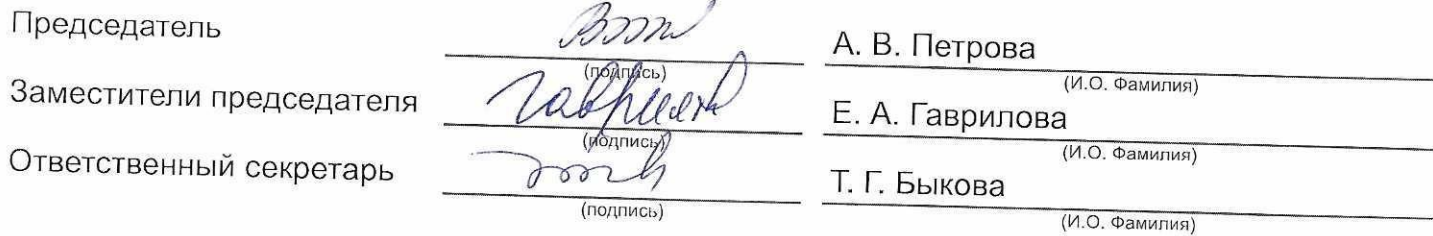 Председатель А. В. Петрова
(подпись) (И.О. Фамилия)
Заместители председателя Гаврилова Е. А. Гаврилова
(подпись) (И.О. Фамилия)
Ответственный секретарь Т. Г. Быкова
(подпись) (И.О. Фамилия)